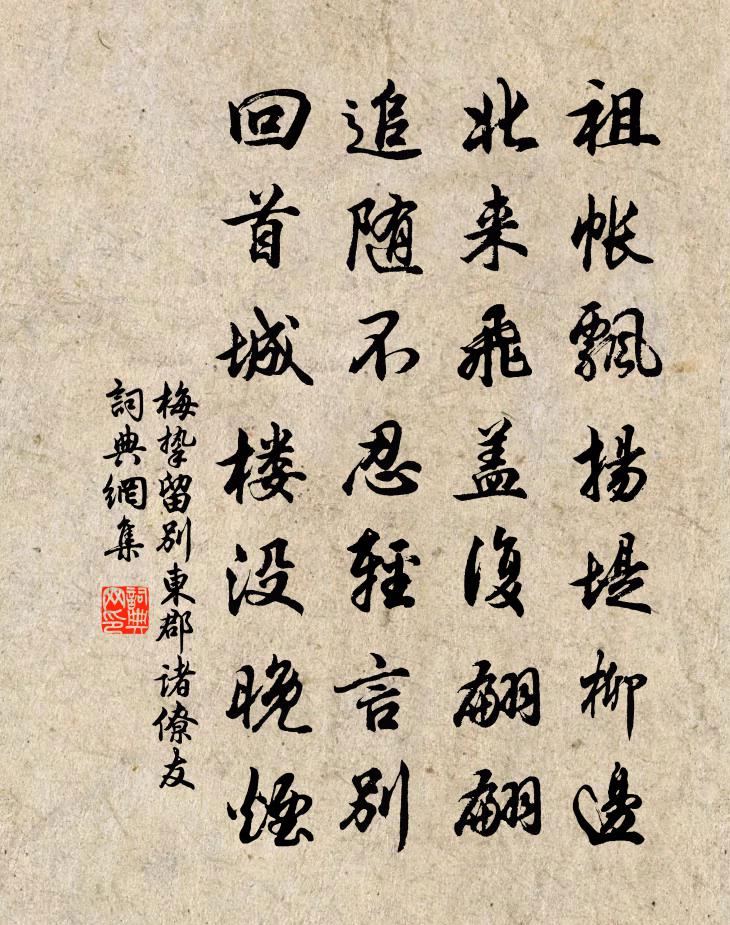 祖帐飘揚堤柳邊
北来飛盖復翩翩
追随不忍輕言别
回首城楼没晚煙
梅挚留别東郡诸僚友
詞典網集
詞典網印